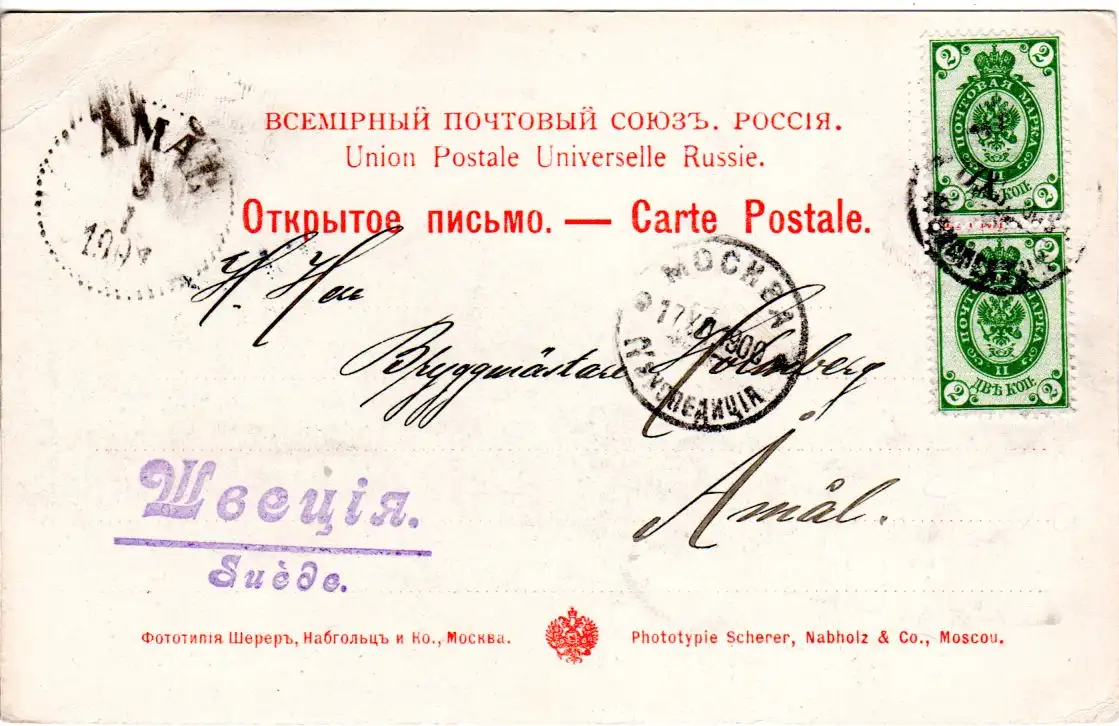 ВСЕМІРНЫЙ ПОЧТОВЫЙ СОЮЗЪ. РОССІЯ.
Union Postale Universelle Russie.
Открытое письмо. — Carte Postale.
2 2
ПОЧТОВАЯ МАРКА
II
ДВѢ КОП.
2 2
ПОЧТОВАЯ МАРКА
II
ДВѢ КОП.
2 2
ÅMÅL
1
190
МОСКВА
17
ЭКСПЕДИЦІЯ
H. Herr
Bryggmästare Holmberg
Åmål.
Швеція.
Suède.
Фототипія Шереръ, Набгольцъ и Ко., Москва.
Phototypie Scherer, Nabholz & Co., Moscou.